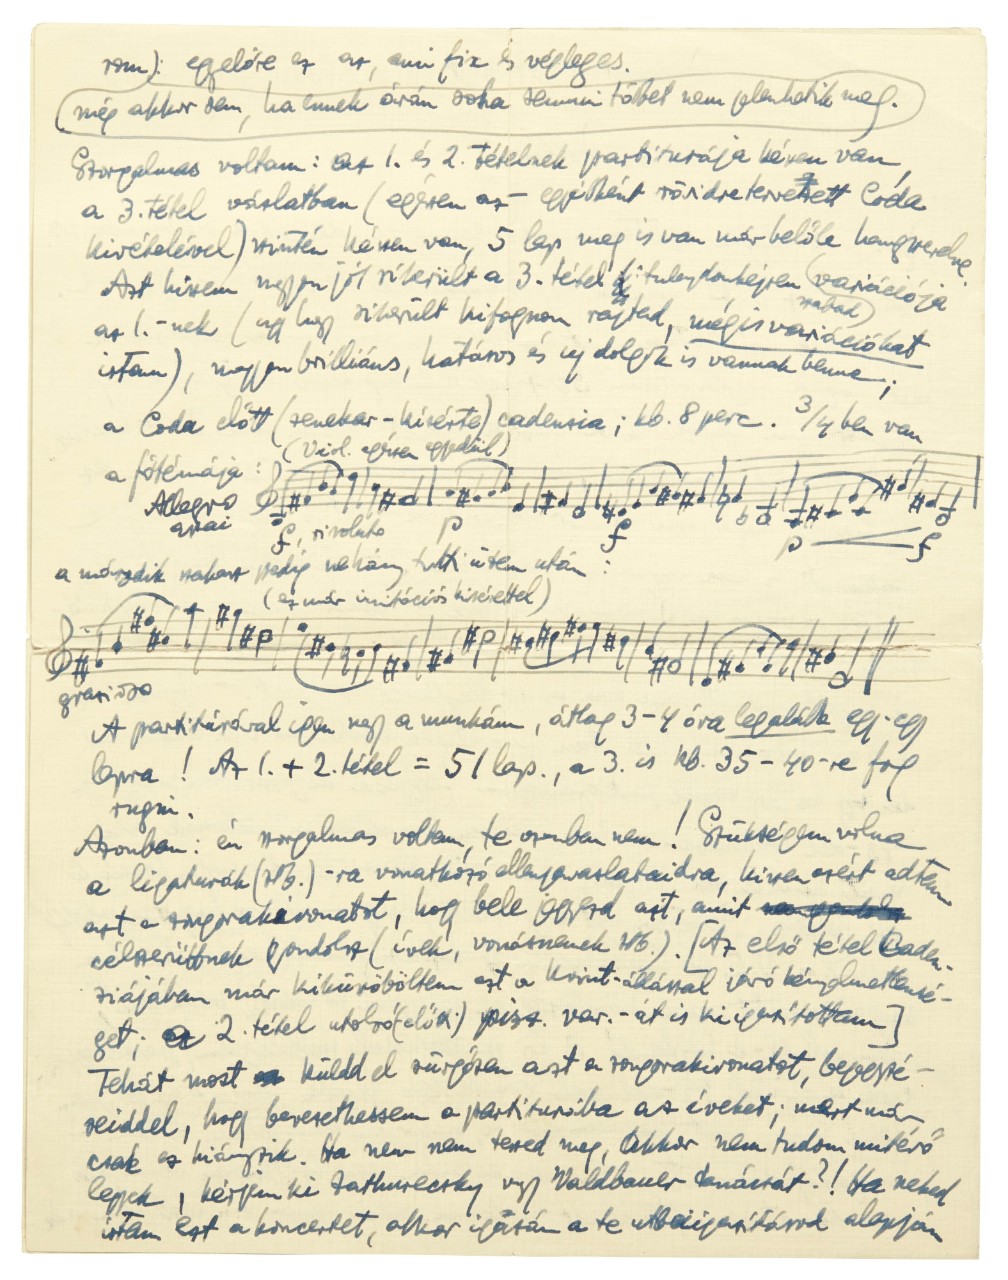 rom): egyelőre ez az, ami fix és végleges.
még akkor sem, ha ennek árán soha semmi többet nem jelenhetik meg.
Szorgalmas voltam: az 1. és 2. tételnek partiturája készen van,
a 3. tétel vázlatban (egészen az – egyébként rövidre tervezett Coda
kivételével) szintén készen van, 5 lap meg is van már belőle hangszerelve.
Azt hiszem nagyon jól sikerült a 3. tétel tulajdonképen (variációja
szabad)
az 1.-nek (úgy hogy sikerült kifognom rajtad, mégis variációkat
írtam), nagyon brilliáns, hatásos és új dolgok is vannak benne;
a Coda előtt (zenekar-kisérte) cadenzia; kb. 8 perc. 3/4 ben van
(Viol. egészen egyedül)
a főtémája:
Allegro
assai
f, risoluto p f p f
a második szakasz pedig néhány tutti ütem után:
(ez már imitációs kisérettel)
grazioso
A partitúrával igen nagy a munkám, átlag 3–4 óra legalább egy-egy
lapra! Az 1. + 2. tétel = 51 lap., a 3. is kb. 35–40-re fog
rugni.
Azonban: én szorgalmas voltam, te azonban nem! Szükségem volna
a ligaturák (stb.)-ra vonatkozó ellenjavaslataidra, hiszen azért adtam
azt a zongorakivonatot, hogy bele jegyezd azt, amit
célszerübbnek gondolsz (ívek, vonásnemek stb.). [Az első tétel Caden-
ziájában már kiküszöböltem azt a kvint-állással járó kényelmetlensé-
get; 2. tétel utolsó(előtti) pizz. var.-át is kiigazítottam]
Tehát most küldd el sürgősen azt a zongorakivonatot, bejegyzé-
seiddel, hogy bevezethessem a partiturába az íveket; mert már
csak ez hiányzik. Ha nem teszed meg, akkor nem tudom mitévő
legyek, kérjem ki Zathureczky vagy Waldbauer tanácsát?! Ha neked
írtam ezt a koncertet, akkor igazán a te utbaigazításod alapján